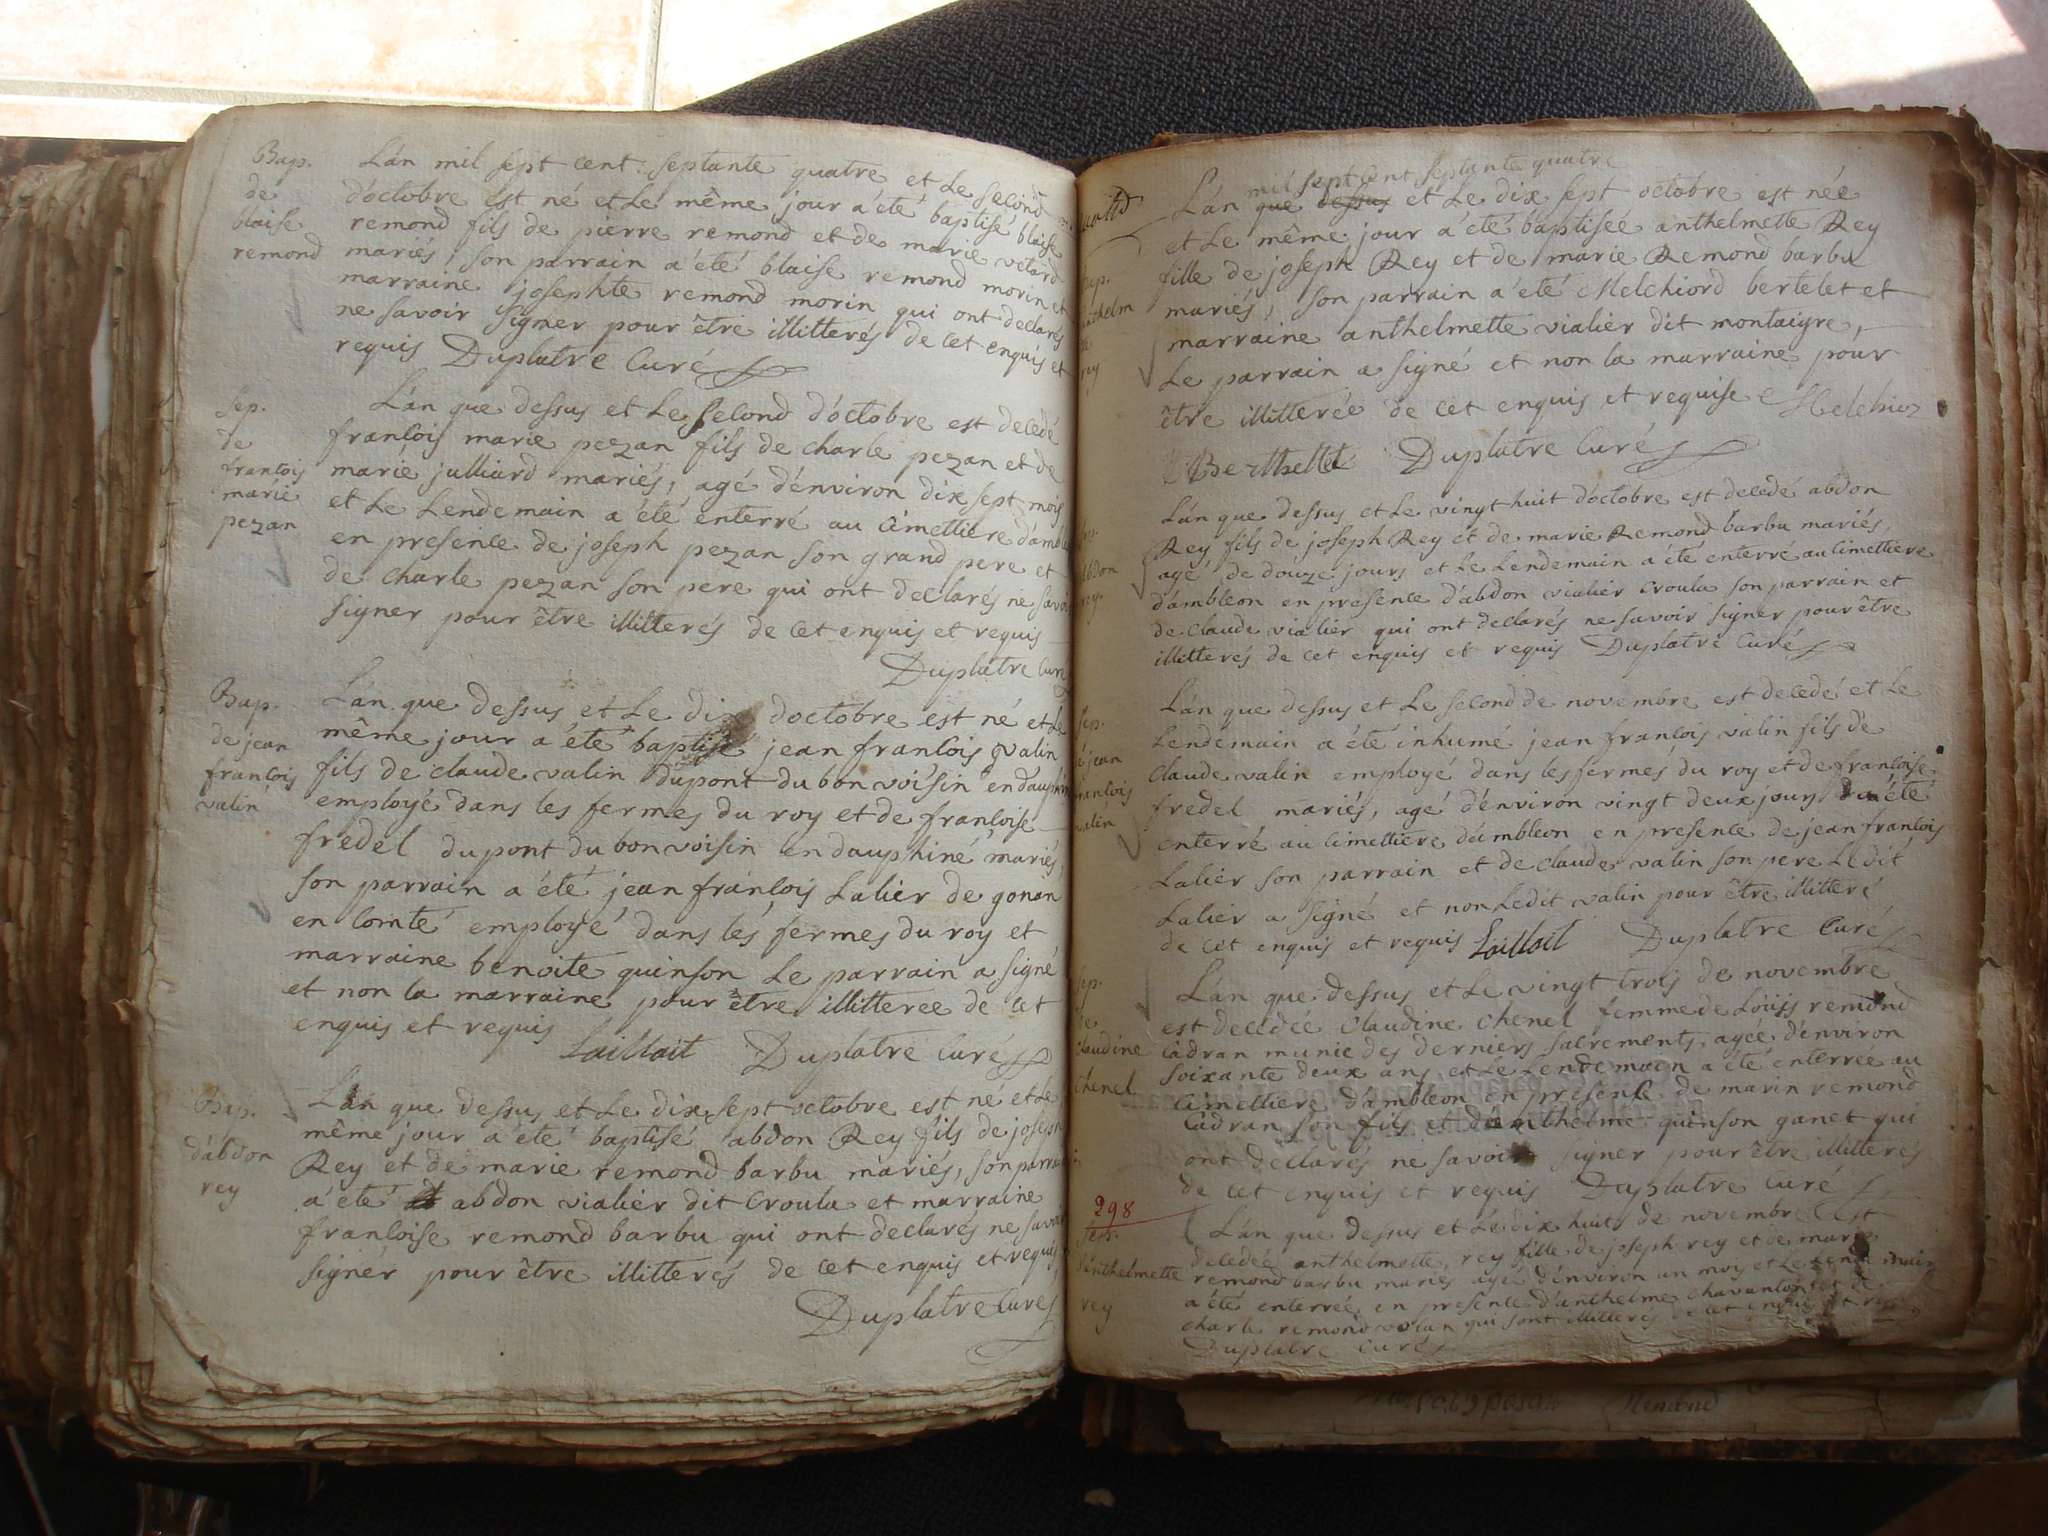 Bap.
de
blaise
remond
L'an mil sept cent septante quatre et le second
d'octobre est né et le même jour a été baptisé blaise
remond fils de pierre remond et de marie vetard
mariés, son parrain a été blaise remond morin et
marraine josephte remond morin qui ont declarés
ne savoir signer pour être illitterés de cet enquis et
requis Duplatre Curé
Sep.
de
francois
marie
pezan
L'an que dessus et le second d'octobre est decedé
francois marie pezan fils de charle pezan et de
marie julliard mariés, agé d'environ dix sept mois
et le lendemain a été enterré au cimettiere
en presence de joseph pezan son grand pere et
de charle pezan son pere qui ont declarés ne
signer pour être illitterés de cet enquis et requis
Duplatre Curé
Bap.
de jean
francois
valin
L'an que dessus et le dix d'octobre est né et le
même jour a été baptisé jean francois valin
fils de claude valin dupont du bonvoisin en
employé dans les fermes du roy et de francoise
fredel du pont du bonvoisin en dauphiné mariés,
son parrain a été jean francois Lalier de gonan
en comté employé dans les fermes du roy et
marraine benoite quinson Le parrain a signé
et non la marraine pour être illitteree de cet
enquis et requis
Laillait Duplatre Curé
Bap.
d'abdon
rey
L'an que dessus et le dix sept octobre est né et le
même jour a été baptisé abdon Rey fils de joseph
Rey et de marie remond barbu mariés, son
a été abdon vialier dit Croula et marraine
francoise remond barbu qui ont declarés ne
signer pour être illitterés de cet enquis et requis
Duplatre Curé
mil sept cent septante quatre
L'an que dessus et le dix sept octobre est née
et le même jour a été baptisée anthelmette Rey
fille de joseph Rey et de marie Remond barbu
mariés, son parrain a été Melchiord bertelet et
marraine anthelmette vialier dit montaigre,
Le parrain a signé et non la marraine pour
être illitterée de cet enquis et requise Melchior
Berthellet Duplatre Curé
L'an que dessus et le vingt huit d'octobre est decedé abdon
Rey fils de joseph Rey et de marie Remond barbu mariés,
agé de douze jours et le lendemain a été enterré au cimettiere
d'ambleon en presence d'abdon vialier Croula son parrain et
de claude vialier qui ont declarés ne savoir signer pour être
illitterés de cet enquis et requis Duplatre Curé
L'an que dessus et le second de novembre est decedé et le
lendemain a été inhumé jean francois valin fils de
Claude valin employé dans les fermes du roy et de francoise
fredel mariés, agé d'environ vingt deux jours a été
enterré au cimettiere d'ambleon en presence de jean francois
Lalier son parrain et de claude valin son pere Le dit
Lalier a signé et non Ledit valin pour être illitteré
de cet enquis et requis Laillait Duplatre Curé
Sep.
de
claudine
chenel
L'an que dessus et le vingt trois de novembre
est decedée Claudine Chenel femme de Louis remond
Cadran munie des derniers sacrements, agée d'environ
soixante deux ans, et le lendemain a été enterrée au
cimettiere d'ambleon en presence de marin remond
Cadran son fils et d'anthelme quinson ganet qui
ont declarés ne savoir signer pour être illitterés
de cet enquis et requis Duplatre Curé
298
d'anthelmette
rey
L'an que dessus et le dix huit de novembre est
decedée anthelmette rey fille de joseph rey et de marie
remond barbu mariés agée d'environ un mois et le
a été enterrée en presence d'anthelme et de
charle remond qui sont illitterés de cet enquis et
Duplatre Curé
Remond